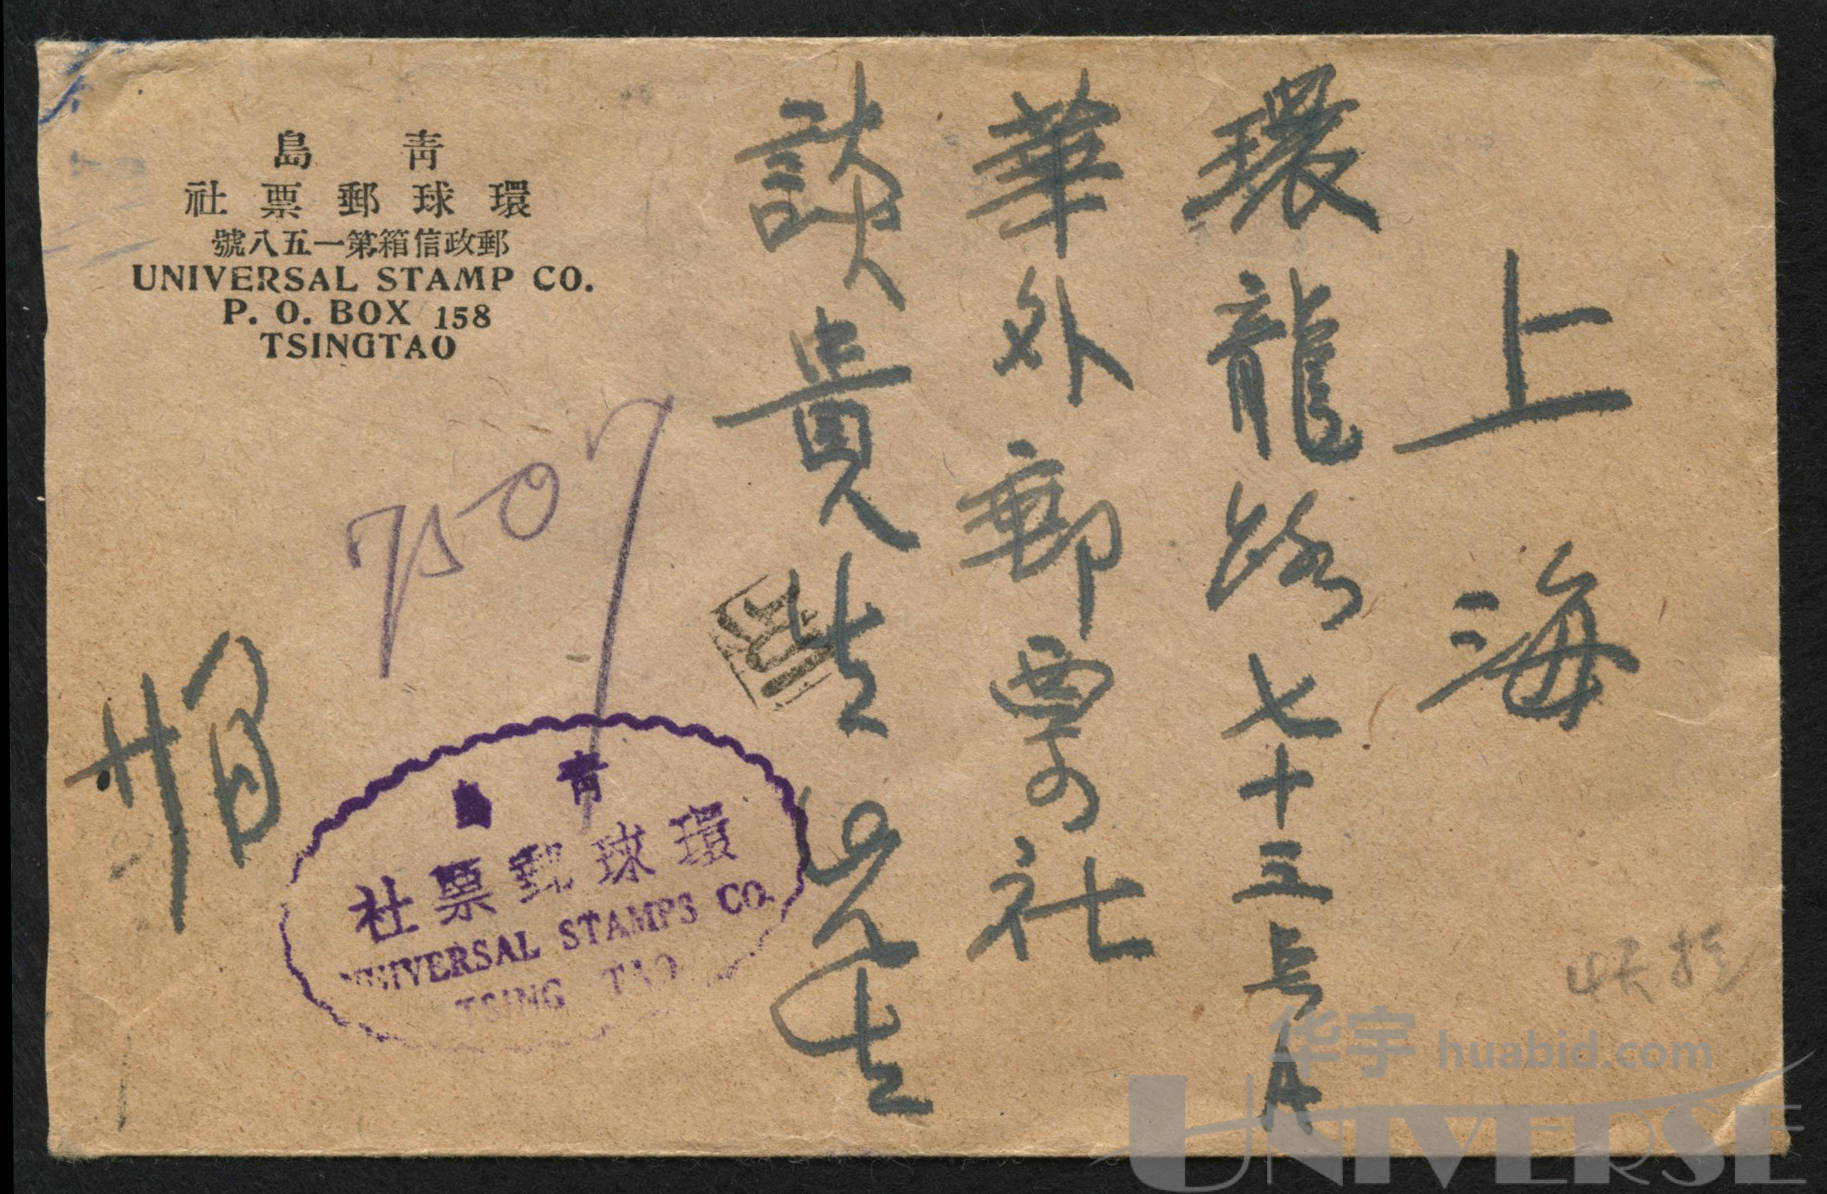 上海
環龍路七十三号A
華外郵票社
談貴生先生
青島
環球郵票社
郵政信箱第一五八號
UNIVERSAL STAMP CO.
P. O. BOX 158
TSINGTAO
7507
青島
環球郵票社
UNIVERSAL STAMPS CO.
TSING TAO
华宇 huabid.com
UNIVERSE